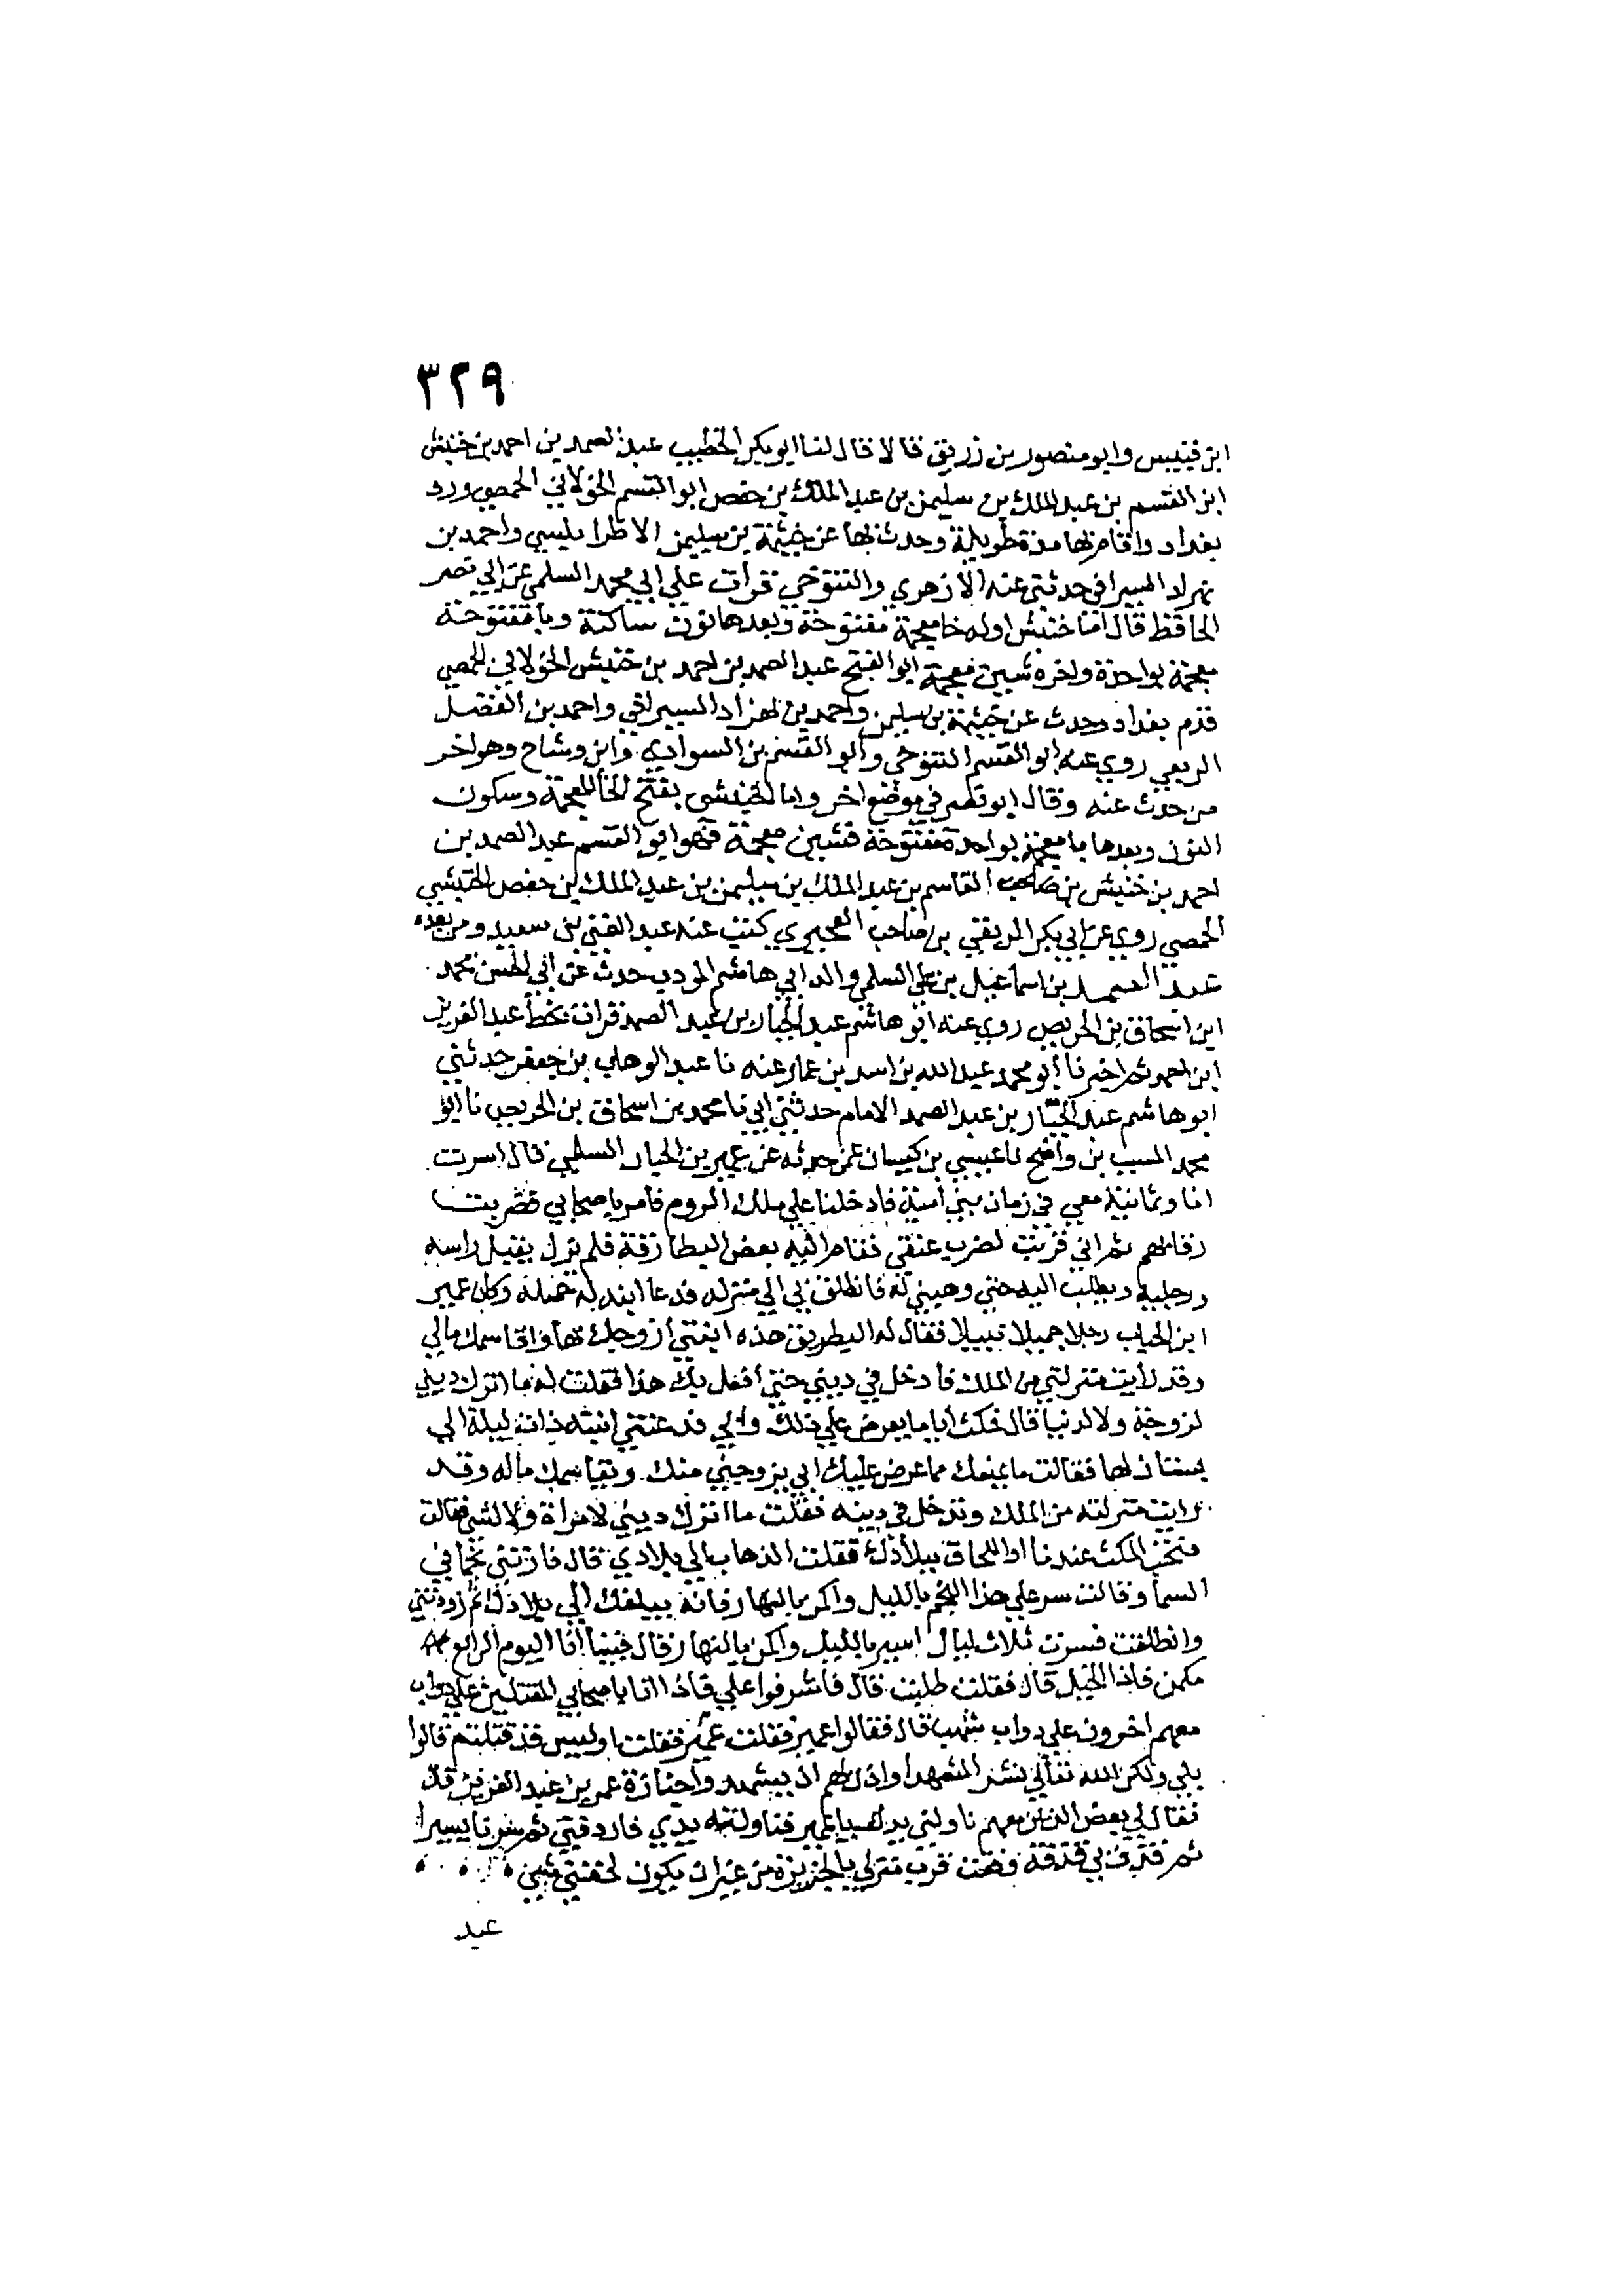 ٣٢٩
ابن قبيس وابو منصور بن زريق قالا قال لنا ابو بكر الخطيب عبد الصمد بن احمد بن خنبش
ابن القسم بن عبد الملك بن سليمن بن عبد الملك بن حفص ابو القسم الخولاني الحمصي ورد
بغداد واقام بها مدة طويلة وحدث بها عن خيثمة بن سليمن الاطرابلسي واحمد بن
بهزاد السيرافي حدثني عنه الازهري والتنوخي قرات علي ابي محمد السلمي عن ابي نصر
الحافظ قال اما خنبش اوله خا معجمة مفتوحة وبعدها نون ساكنة وبا مفتوحة
معجمة بواحدة واخره شين معجمة ابو الفتح عبد الصمد بن احمد بن خنبش الخولاني الحمصي
قدم بغداد وحدث عن خيثمة بن سليمن واحمد بن بهزاد السيرافي واحمد بن الفضل
الربعي روي عنه ابو القسم التنوخي وابو القسم بن السوادي وابن وشاح وهو اخر
من حدث عنه وقال ابو نصر في موضع اخر واما الخنبشي بفتح الخا المعجمة وسكون
النون وبعدها با معجمة بواحدة مفتوحة فشين معجمة فهو ابو القسم عبد الصمد بن
احمد بن خنبش بن القاسم بن عبد الملك بن سليمن بن عبد الملك بن حفص الخنبشي
الحمصي روي عن ابي بكر بن صاحب كتب عنه عبد الغني بن سعيد ومن بعده
عبد الصمد بن اسماعيل بن علي السلمي والد ابي هاشم المودب حدث عن ابي الحسن محمد
ابن اسحاق بن الحريص روي عنه ابو هاشم عبد الجبار بن عبد الصمد قرات بخط عبد العزيز
ابن احمد ثم اخبرنا ابو محمد عبد الله بن اسد بن عمار عنه نا عبد الوهاب بن جعفر حدثني
ابو هاشم عبد الجبار بن عبد الصمد الامام حدثني ابي نا محمد بن اسحاق بن الحريص نا ابو
محمد المسيب بن واضح نا عيسي بن كيسان عمن حدثه عن عمير بن الحباب السلمي قال اسرت
انا وثمانية معي في زمان بني امية فادخلنا علي ملك الروم فامر باصحابي فضربت
رقابهم ثم اني قربت لضرب عنقي فقام اليه بعض البطارقة فلم يزل يقبل راسه
ورجليه ويطلب اليه حتي وهبني له فانطلق بي الي منزله فدعا ابنه له جميلة وكان عمير
ابن الحباب رجلا جميلا نبيلا فقال له البطريق هذه ابنتي ازوجك بها واقاسمك مالي
وقد رايت منزلتي من الملك فادخل في ديني حتي افعل بك هذا فقلت له ما اترك ديني
لزوجة ولا لدنيا قال فمكث اياما يعرض علي ذلك وابي فدعتني ابنته ذات ليلة الي
بستان لها فقالت ما يمنعك مما عرض عليك ابي يزوجني منك ويقاسمك ماله وقد
رايت منزلته من الملك وتدخل في دينه فقلت ما اترك ديني لامراة ولا لشي فقالت
تحب المكث عندنا او اللحاق ببلادك فقلت الذهاب الي بلادي قال فارتني نجما في
السما وقالت سر علي هذا النجم بالليل واكمن بالنهار فانه يبلغك الي بلادك ثم زودتني
وانطلقت فسرت ثلاث ليال اسير بالليل واكمن بالنهار قال فبينا انا اليوم الرابع
مكمن فاذا الخيل قال فقلت طلبت قال فاشرفوا علي فاذا انا باصحابي المقتلين علي دواب
معهم اخرون علي دواب شهب قال فقالوا عمير فقلت عمير فقلت اوليس قد قتلتم قالوا
بلي ولكن الله تعالي نشر الشهدا واذن لهم ان يشهدوا جنازة عمر بن عبد العزيز قال
فقال لي بعض الذين معهم ناولني يدك يا عمير فناولته يدي فاردفني ثم سرنا يسيرا
ثم قذف بي قذفة وقعت قرب منزلي بالجزيرة من غير ان يكون لحقني شيي
عبد